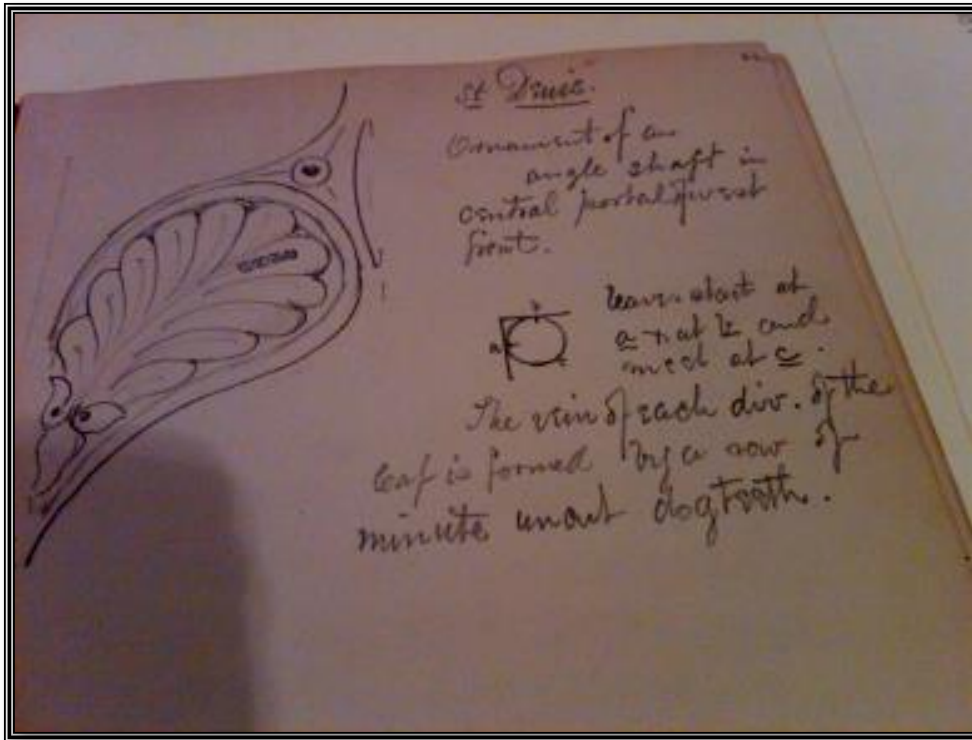 St Denis.
Ornament of an
angle shaft in
central portal of west
front.
b
leaves start at
a
a & at b and
c
meet at c.
The vein of each div. of the
leaf is formed by a row of
minute uncut dogteeth.